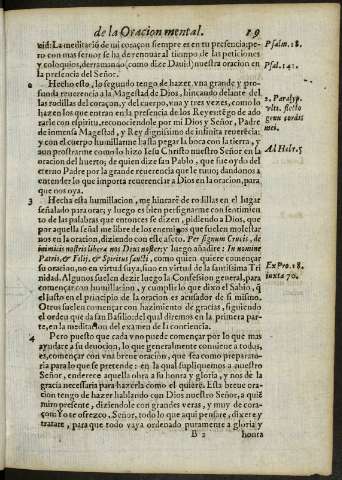 de la Oracion mental. 19
uid: La meditació de mi coraçon siempre es en tu presencia: pe-
ro con mas feruor se ha de renouar al tiempo de las peticiones
y coloquios, derramando (como dize Dauid) nuestra oracion en
la presencia del Señor.
Psalm. 18.
Psal. 141.
2 Hecho esto, lo segundo tengo de hazer vna grande y pro-
funda reuerencia a la Magestad de Dios, hincando delante del
las rodillas del coraçon, y del cuerpo, vna y tres vezes, como lo
hazen los que entran en la presencia de los Reyes: tégo de ado-
rarle con espiritu, reconociendole por mi Dios y Señor, Padre
de inmensa Magestad, y Rey dignissimo de infinita reuerécia:
y con el cuerpo humillarme hasta pegar la boca con la tierra, y
aun prostrarme como lo hizo Iesu Christo nuestro Señor en la
oracion del huerto; de quien dize san Pablo, que fue oydo del
eterno Padre por la grande reuerencia que le tuuo; dandonos a
entender lo que importa reuerenciar a Dios en la oracion, para
que nos oya.
2. Paralyp.
vlt. flecto
genu cordis
mei.
Ad Hebr. 5
3 Hecha esta humillacion, me hincaré de rodillas en el lugar
señalado para orar; y luego es bien persignarme con sentimien-
to de las palabras que entonces se dizen, pidiendo a Dios, que
por aquella señal me libre de los enemigos que suelen molestar
nos en la oracion, diziendo con este afecto. Per signum Crucis, de
inimicis nostris libera nos Deus noster: y luego añadire: In nomine
Patris, & Filij, & Spiritus sancti, como quien quiere começar
su oracion, no en virtud suya, sino en virtud de la santissima Tri
nidad. Algunos suelen dezir luego la Confession general, para
començar con humillacion, y cumplir lo que dixo el Sabio, q̃
el justo en el principio de la oracion es acusador de si mismo.
Otros suelen començar con hazimiento de gracias, siguiendo
el orden que da san Basilio: del qual diremos en la primera par-
te, en la meditacion del examen de la conciencia.
Ex Pro. 18.
iuxta 70.
4 Pero puesto que cada vno puede començar por lo que mas
ayudare a su deuocion, lo que generalmente conuiene a todos,
es, començar con vna breue oracion, que sea como preparato-
ria para lo que se pretende: en la qual supliquemos a nuestro
Señor, enderece aquella obra a su honra y gloria, y nos de la
gracia necessaria para hazerla como el quiere. Esta breue ora-
cion tengo de hazer hablando con Dios nuestro Señor, a quié
miro presente, diziendole con grandes veras, y muy de cora-
çon: Yo te ofrezco, Señor, todo lo que aqui pensare, dixere y
tratare, para que todo vaya ordenado puramente a gloria y
B 2 honra